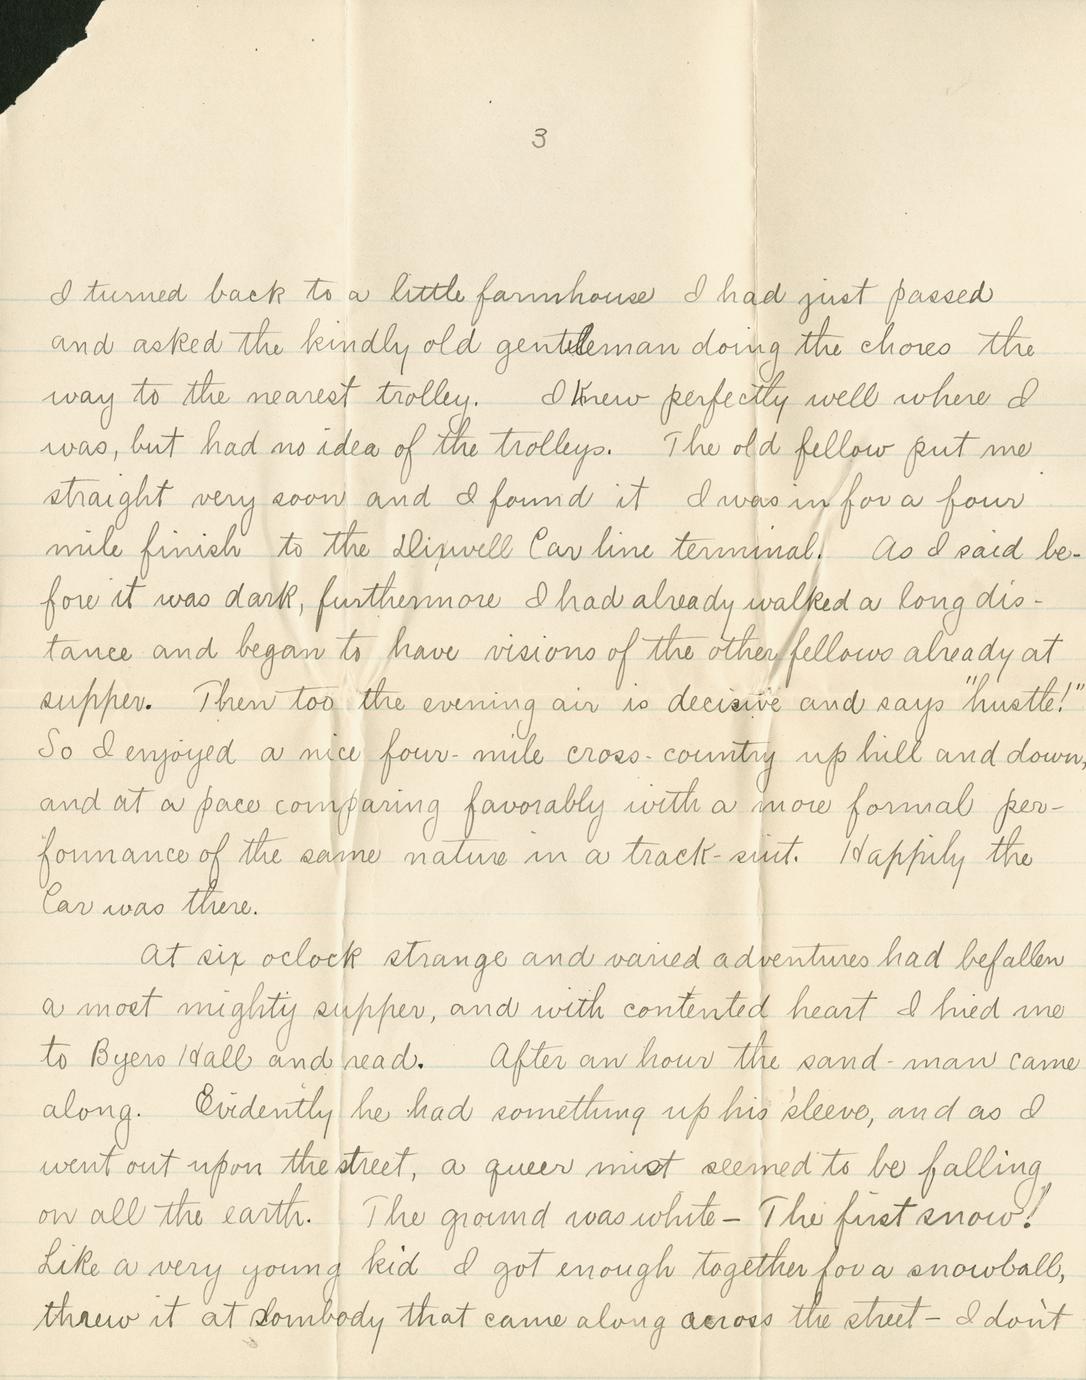 3
I turned back to a little farmhouse I had just passed
and asked the kindly old gentleman doing the chores the
way to the nearest trolley. I knew perfectly well where I
was, but had no idea of the trolleys. The old fellow put me
straight very soon and I found it I was in for a four
mile finish to the Dixwell Car line terminal. As I said be-
fore it was dark, furthermore I had already walked a long dis-
tance and began to have visions of the other fellows already at
supper. Then too the evening air is decisive and says "hustle!"
So I enjoyed a nice four-mile cross-country up hill and down,
and at a pace comparing favorably with a more formal per-
formance of the same nature in a track-suit. Happily the
Car was there.
At six oclock strange and varied adventures had befallen
a most mighty supper, and with contented heart I hied me
to Byers Hall and read. After an hour the sand-man came
along. Evidently he had something up his 'sleeve, and as I
went out upon the street, a queer mist seemed to be falling
on all the earth. The ground was white – The first snow!
Like a very young kid I got enough together for a snowball,
threw it at Sombody that came along across the street – I don't